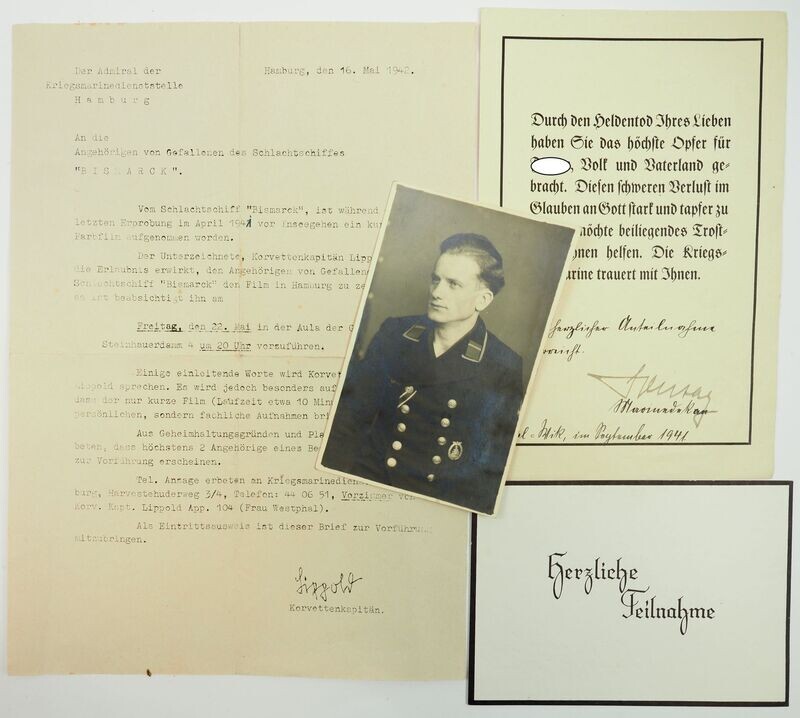 Der Admiral der
Kriegsmarinedienststelle
Hamburg
Hamburg, den 16. Mai 1942.
An die
Angehörigen von Gefallenen des Schlachtschiffes
"BISMARCK".
Vom Schlachtschiff "Bismarck", ist während
letzten Erprobung im April 1941 vor Inseegehen ein
Farbfilm aufgenommen worden.
Der Unterzeichnete, Korvettenkapitän
die Erlaubnis erwirkt, den Angehörigen von
Schlachtschiff "Bismarck" den Film in Hamburg zu
es ist beabsichtigt ihn am
Freitag, den 22. Mai in der Aula der
Steinhauerdamm 4 um 20 Uhr vorzuführen.
Einige einleitende Worte wird
Lippold sprechen. Es wird jedoch besonders
dass der nur kurze Film (Laufzeit etwa 10
persönlichen, sondern fachliche Aufnahmen
Aus Geheimhaltungsgründen und
beten, dass höchstens 2 Angehörige eines
zur Vorführung erscheinen.
Tel. Ansage erbeten an
burg, Harvestehuderweg 3/4, Telefon: 44 06 51, Vorzimmer von
Korv. Kapt. Lippold App. 104 (Frau Westphal).
Als Eintrittsausweis ist dieser Brief zur Vorführung
mitzubringen.
Lippold
Korvettenkapitän.
Durch den Heldentod Ihres Lieben
haben Sie das höchste Opfer für
, Volk und Vaterland ge-
bracht. Diesen schweren Verlust im
Glauben an Gott stark und tapfer zu
möchte beiliegendes Trost-
helfen. Die Kriegs-
marine trauert mit Ihnen.
herzlicher Anteilnahme
im September 1941
Herzliche
Teilnahme